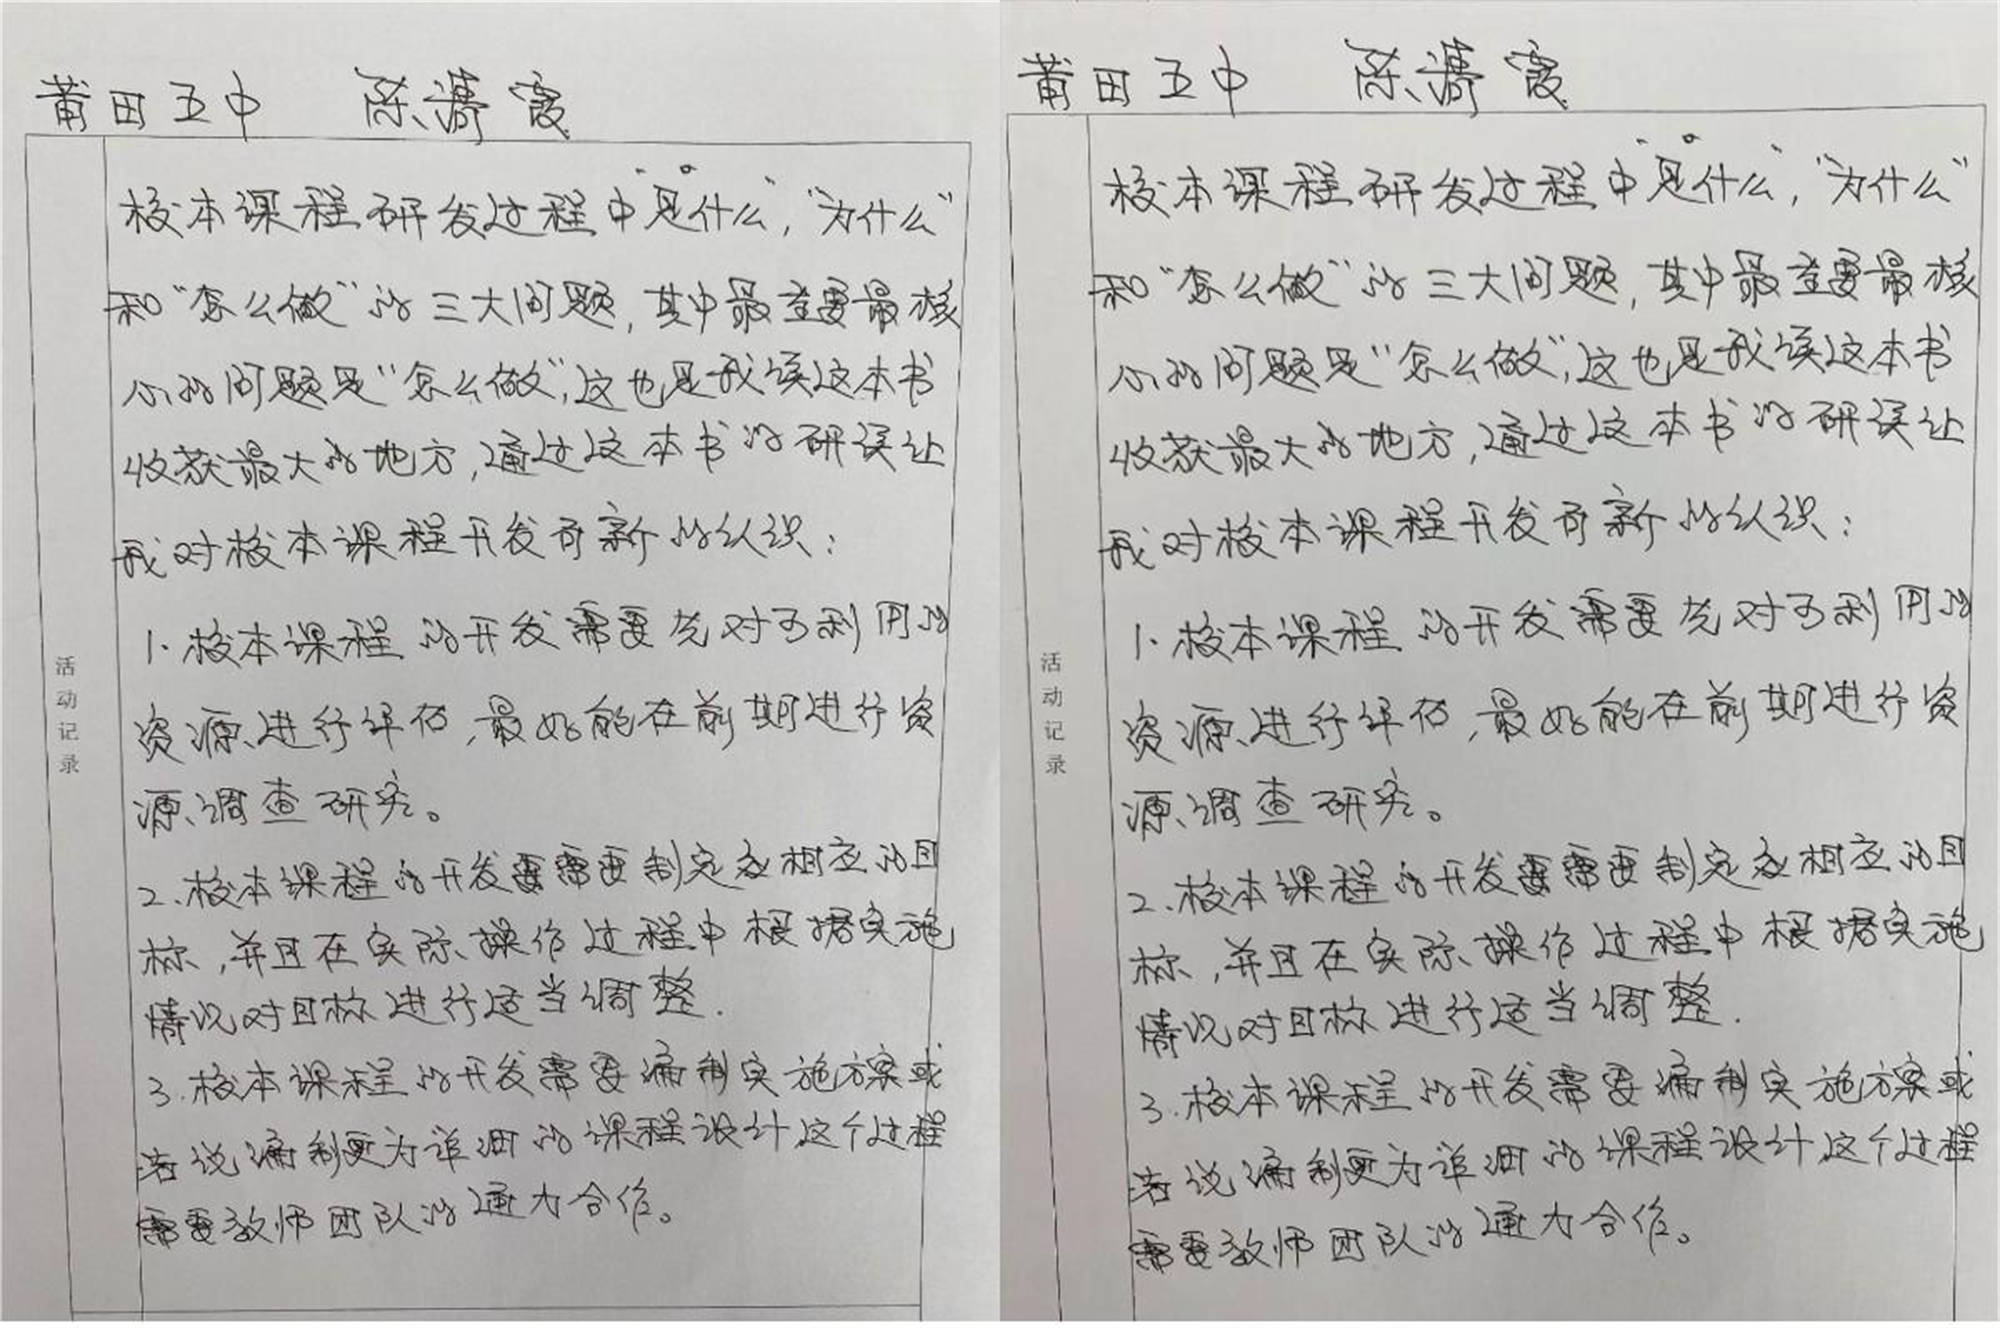 莆田五中 陈漪霞
校本课程研发过程中"是什么","为什么"
和"怎么做"的三大问题,其中最重要最核
心的问题是"怎么做",这也是我读这本书
收获最大的地方,通过这本书的研读让
我对校本课程开发有新的认识:
1.校本课程的开发需要先对可利用的
资源进行评估,最好能在前期进行资
源调查研究。
2.校本课程的开发要需要制定出相应的目
标,并且在实际操作过程中根据实施
情况对目标进行适当调整.
3.校本课程的开发需要编制实施方案或
者说编制更为详细的课程设计这个过程
需要教师团队的通力合作。
活动记录
莆田五中 陈漪霞
校本课程研发过程中"是什么","为什么"
和"怎么做"的三大问题,其中最重要最核
心的问题是"怎么做",这也是我读这本书
收获最大的地方,通过这本书的研读让
我对校本课程开发有新的认识:
1.校本课程的开发需要先对可利用的
资源进行评估,最好能在前期进行资
源调查研究。
2.校本课程的开发要需要制定出相应的目
标,并且在实际操作过程中根据实施
情况对目标进行适当调整.
3.校本课程的开发需要编制实施方案或
者说编制更为详细的课程设计这个过程
需要教师团队的通力合作。
活动记录